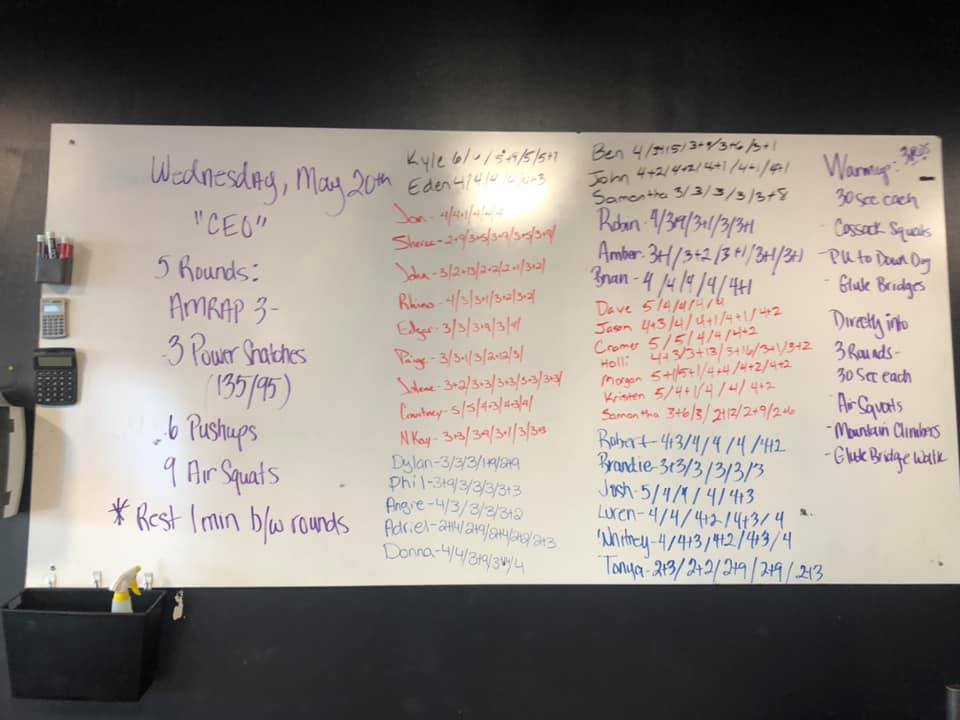 Wednesday, May 20th
"CEO"
5 Rounds:
AMRAP 3-
-3 Power Snatches
(135/95)
-6 Pushups
9 Air Squats
* Rest 1 min b/w rounds
Kyle 6/
Eden 4/4/4
Jon- 4/4+1/4/4/4
Sheree- 2+9/3+5/3+9/3+5/3+9/
John- 3/2+13/2+2/2+1/3+2/
Rhino- 4/3/3+1/3+2/3+2/
Edgar- 3/3/3+9/3/4/
Paige- 3/3+1/3/2+12/3/
3+2/3+3/3+3/3+3/3+3/
Courtney- 5/5/4+3/4+3/4/
N Kay- 3+3/3+9/3+1/3/3+3
Dylan-3/3/3/1+9/2+9
Phil-3+9/3/3/3/3+3
Angie- 4/3/3/3/3+2
Adriel-2+4/2+9/2+4/2+2/2+3
Donna-4/4/3+9/3
Ben 4/
John 4+2/4+2/4+1/4+1/4+1
Samantha 3/3/3/3/3+8
Robin- 4/3+9/3+1/3/3+1
Amber- 3+1/3+2/3+1/3+1/3+1
Brian- 4/4/4/4/4+1
Dave 5/4/4/4/4
Jason 4+3/4/4+1/4+1/4+2
Cramer 5/5/4/4/4+2
Holli 4+3/3+13/3+16/3+1/3+2
Morgan 5+1/5+1/4+4/4+2/4+2
Kristen 5/4+1/4/4/4+2
Samantha 3+6/3/2+12/2+9/2+6
Robert-4+3/4/4/4/4+2
Brandie-3+3/3/3/3/3
Josh- 5/4/4/4/4+3
Loren- 4/4/4+2/4+3/4
Whitney-4/4+3/4+2/4+3/4
Tanya-2+3/2+2/2+9/2+9/2+3
Warmup-
30 Sec each
- Cossack Squats
- PU to Down Dog
- Glute Bridges
Directly into
3 Rounds-
30 Sec each
- Air Squats
- Mountain Climbers
- Glute Bridge Walk